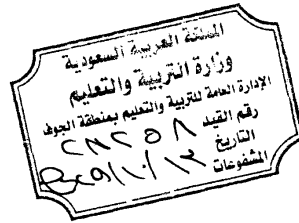 المملكة العربية السعودية
وزارة التربية والتعليم
الإدارة العامة للتربية والتعليم بمنطقة الجوف
رقم القيد
التاريخ
المشفوعات